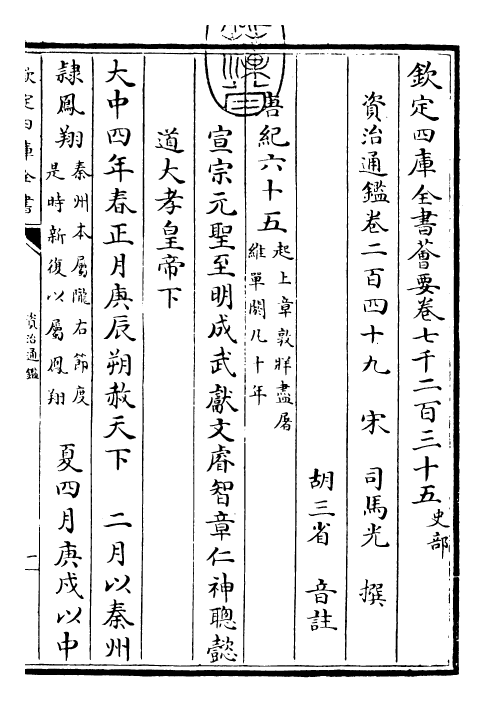 欽定四庫全書薈要卷七千二百三十五 史部
資治通鑑卷二百四十九 宋 司馬光 撰
胡三省 音註
唐紀六十五 起上章敦牂盡屠
維單閼凡十年
宣宗元聖至明成武獻文睿智章仁神聰懿
道大孝皇帝下
大中四年春正月庚辰朔赦天下 二月以秦州
隸鳳翔 秦州本屬隴右節度
是時新復以屬鳳翔
夏四月庚戌以中
欽定四庫全書
資治通鑑
一